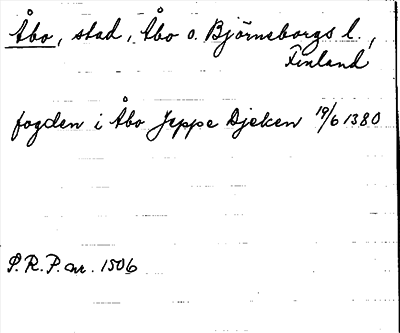 Åbo, stad, Åbo o. Björneborgs l.,
Finland
fogden i Åbo Jeppe Djeken 19/6 1380
S.R.P. nr. 1506